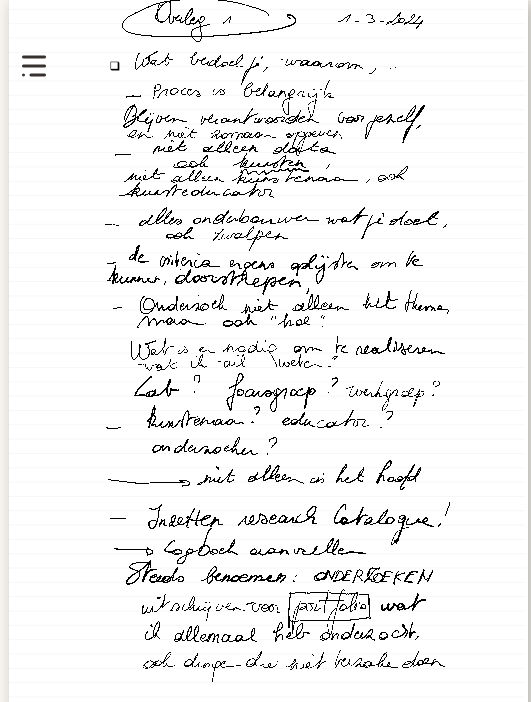 Overleg 1 1-3-2024
Wat bedoel je, waarom, ..
— Proces is belangrijk
Blijven verantwoorden voor jezelf,
en niet zomaar opgeven.
— niet alleen data
ook kunsten,
niet alleen kunstenaar, ook
kunsteducator
— alles onderbouwen wat je doet,
ook zwalpen
— de criteria ergens oplijsten om te
kunnen doorstrepen,
— Onderzoek niet alleen het thema,
maar ook "hoe".
Wat is er nodig om te realiseren
wat ik wil weten?
Lab? focusgroep? werkgroep?
— kunstenaar? educator?
onderzoeker?
→ niet alleen in het hoofd
— Inzetten research Catalogue!
→ Logboek aanvullen
Steeds benoemen: ONDERZOEKEN
uitschrijven voor portfolio wat
ik allemaal heb onderzocht,
ook dingen die niet terzake doen